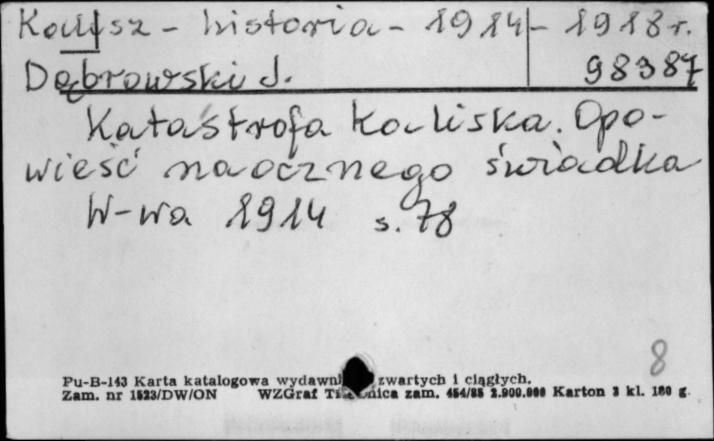 Kalisz - historia - 1914 - 1918 r.
Dąbrowski J. 98387
Katastrofa Kaliska. Opo-
wieść naocznego świadka
W-wa 1914 s. 78
8
Pu-B-143 Karta katalogowa zwartych i ciągłych.
Zam. nr 1523/DW/ON WZGraf zam. 454/85 2.900.000 Karton 3 kl. 180 g.